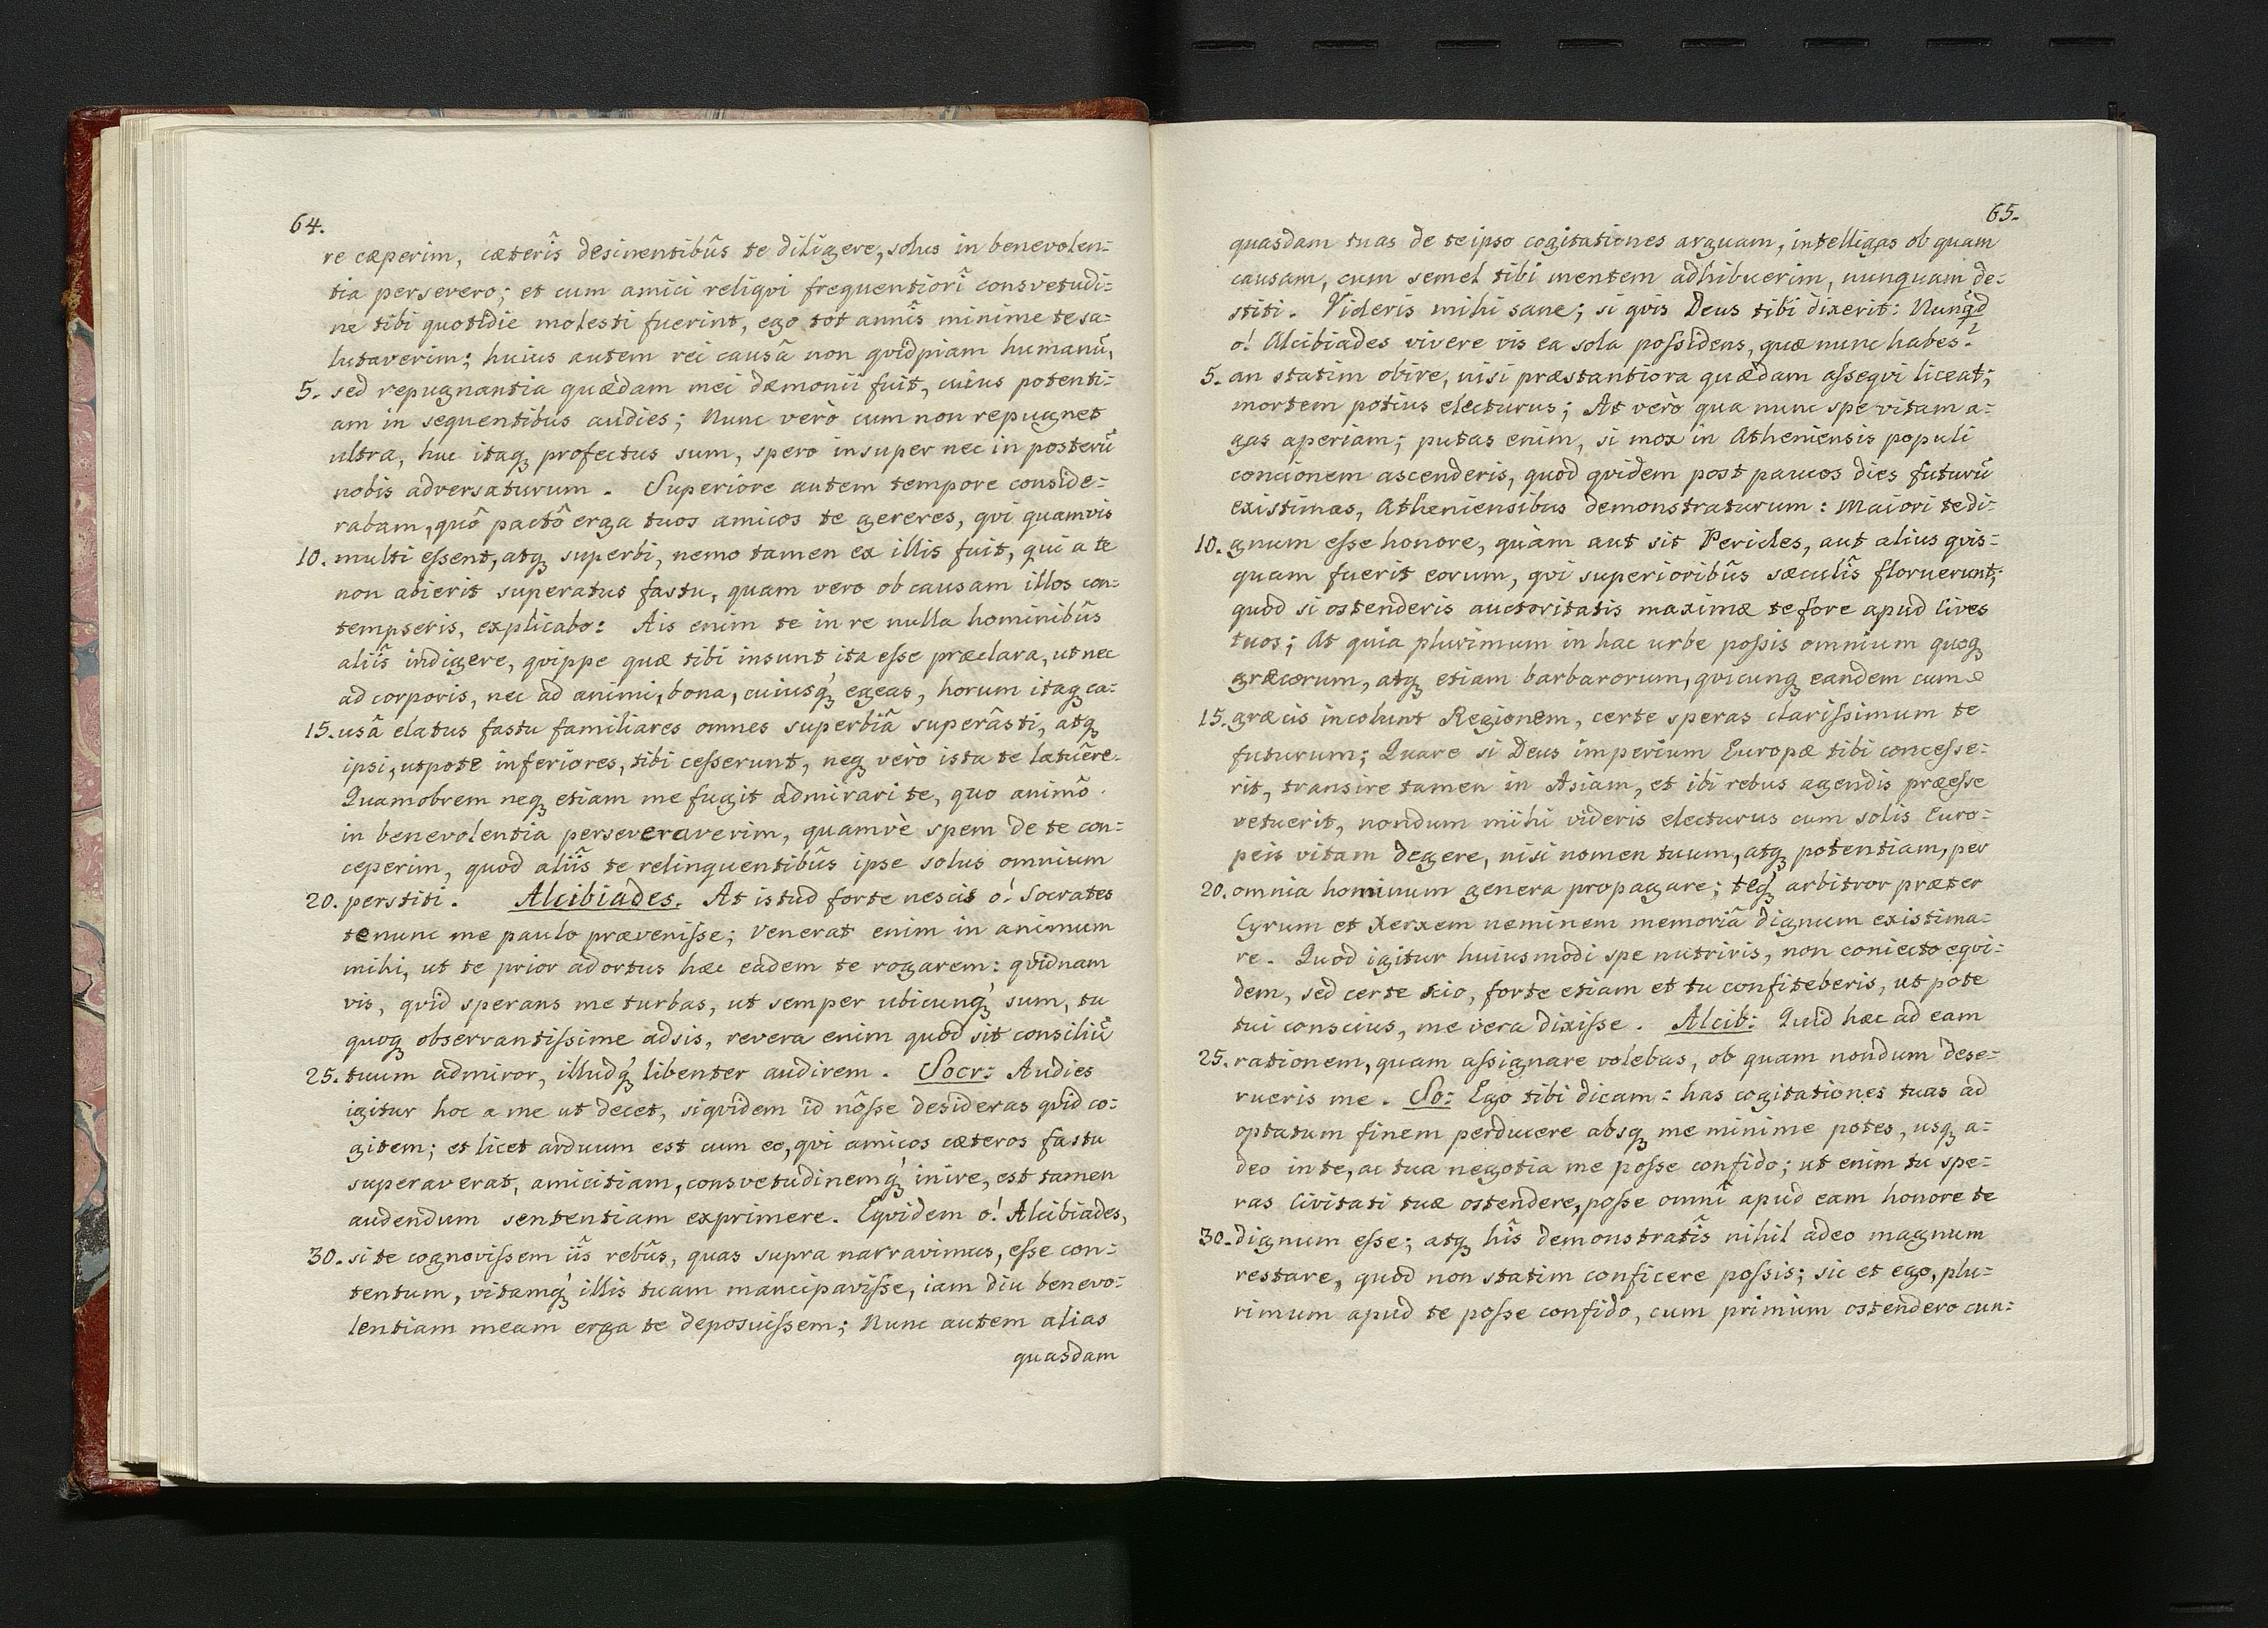 64.
re cæperim, cæteris̃ desinentibûs te diligere, solus in benevolen=
tia persevero; et cum amici reliqvi frequentiorî consvetudi=
ne tibi quotidie molesti fuerint, ego tot annîs minime te sa=
lutaverim; huius autem rei causâ non qvidpiam humanũ,
5. sed repugnantia quædam mei dæmonii fuit, cuius potenti=
am in sequentibus audies; Nunc verò cum non repugnet
ultra, huc itaqꝫ profectus sum, spero insuper nec in posterũ
nobis adversaturum. Superiore autem tempore conside=
rabam, quô pactô erga tuos amicos te gereres, qvi quamvis
10. multi eſsent, atqꝫ superbi, nemo tamen ex illis fuit, qui a te
non abierit superatus fastu, quam vero ob causam illos con=
tempseris, explicabo: Ais enim te in re nulla hominibûs
aliîs indigere, qvippe quæ tibi insunt ita eſse præclara, ut nec
ad corporis, nec ad animi, bona, cuiusqꝫ́ egeas, horum itaqꝫ ca=
15. usâ elatus fastu familiares omnes superbiâ superâsti, atqꝫ
ipsi, utpote inferiores, tibi ceſserunt, neqꝫ verò ista te latuêre.
Quamobrem neqꝫ etiam me fugit admirari te, quo animô
in benevolentia perseveraverim, quamvè spem de te con=
ceperim, quod aliîs te relinquentibûs ipse solus omnium
20. perstiti. Alcibiades. At istud forte nescis o! Socrates
te nunc me paulo præveniſse; Venerat enim in animum
mihi, ut te prior adortus hæc eadem te rogarem: qvidnam
vis, qvid sperans me turbas, ut semper ubicunqꝫ́ sum, tu
quoqꝫ observantiſsime adsis, revera enim quod sit consiliũ
25. tuum admiror, illudqꝫ́ libenter audirem. Socr: Audies
igitur hoc a me ut decet, siqvidem id nôſse desideras qvid co=
gitem; et licet arduum est cum eo, qvi amicos cæteros fastu
superaverat, amicitiam, consvetudinemqꝫ́ inire, est tamen
audendum sententiam exprimere. Eqvidem o! Alcibiades,
30. si te cognoviſsem iîs rebûs, quas supra narravimus, eſse con=
tentum, vitamqꝫ́ illis tuam mancipaviſse, iam diu benevo=
lentiam meam erga te deposuiſsem; Nunc autem alias
quasdam
65.
quasdam tuas de te ipso cogitationes arguam, intelligas ob quam
causam, cum semel tibi mentem adhibuerim, nunquam de=
stiti. Videris mihi sane; si qvis Deus tibi dixerit: Nunqd
o! Alcibiades vivere vis ea sola poſsidens, quæ nunc habes?
5. an statim obire, nisi præstantiora quædam aſseqvi liceat;
mortem potius electurus; At verò qua nunc spe vitam a=
gas aperiam; putas enim, si mox in Atheniensis populi
concionem ascenderis, quod qvidem post paucos dies futurũ
existimas, Atheniensibus demonstraturum: Maiori te di=
10. gnum eſse honore, quàm aut sit Pericles, aut alius qvis=
quam fuerit eorum, qvi superioribûs sæculîs floruerunt;
quod si ostenderis auctoritatis maximæ te fore apud Cives
tuos; At quia plurimum in hac urbe poſsis omnium quoqꝫ
græcorum, atqꝫ etiam barbarorum, qvicunqꝫ eandem cum
15. græcis incolunt Regionem, certe speras clariſsimum te
futurum; Quare si Deus imperium Europæ tibi conceſse=
rit, transire tamen in Asiam, et ibi rebus agendis præeſse
vetuerit, nondum mihi videris electurus cum solis Euro=
peis vitam degere, nisi nomen tuum, atqꝫ potentiam, per
20. omnia hominum genera propagare; teqꝫ́ arbitror præter
Cyrum et Xerxem neminem memoriâ dignum existima=
re. Quod igitur huiusmodi spe nutriris, non coniecto eqvi=
dem, sed certe scio, forte etiam et tu confiteberis, ut pote
tui conscius, me vera dixiſse. Alcib: Quid hæc ad eam
25. rationem, quam aſsignare volebas, ob quam nondum dese=
rueris me. So: Ego tibi dicam: has cogitationes tuas ad
optatum finem perducere absqꝫ me minime potes, usqꝫ a=
deo in te, ac tua negotia me poſse confido; ut enim tu spe=
ras Civitati tuæ ostendere, poſse omnî apud eam honore te
30. dignum eſse; atqꝫ hîs demonstratîs nihil adeo magnum
restare, quod non statim conficere poſsis; sic et ego, plu=
rimum apud te poſse confido, cum primùm ostendero cun=